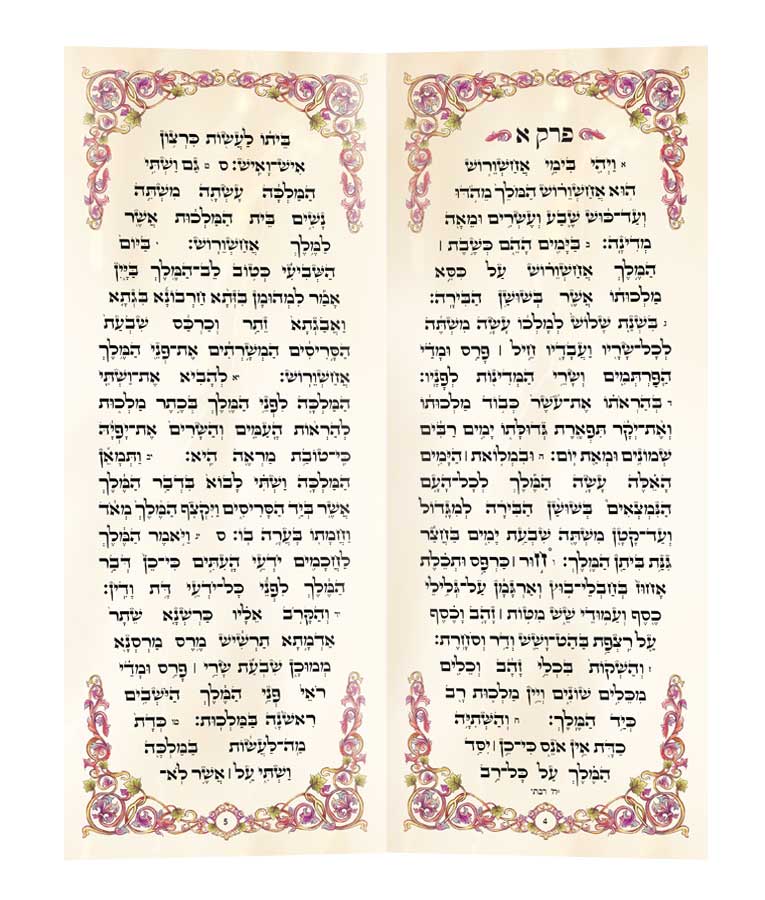 פרק א
א וַיְהִי בִּימֵי אֲחַשְׁוֵרוֹשׁ
הוּא אֲחַשְׁוֵרוֹשׁ הַמֹּלֵךְ מֵהֹדּוּ
וְעַד־כּוּשׁ שֶׁבַע וְעֶשְׂרִים וּמֵאָה
מְדִינָה׃ ב בַּיָּמִים הָהֵם כְּשֶׁבֶת ׀
הַמֶּלֶךְ אֲחַשְׁוֵרוֹשׁ עַל כִּסֵּא
מַלְכוּתוֹ אֲשֶׁר בְּשׁוּשַׁן הַבִּירָה׃
ג בִּשְׁנַת שָׁלוֹשׁ לְמָלְכוֹ עָשָׂה מִשְׁתֶּה
לְכָל־שָׂרָיו וַעֲבָדָיו חֵיל ׀ פָּרַס וּמָדַי
הַפַּרְתְּמִים וְשָׂרֵי הַמְּדִינוֹת לְפָנָיו׃
ד בְּהַרְאֹתוֹ אֶת־עֹשֶׁר כְּבוֹד מַלְכוּתוֹ
וְאֶת־יְקָר תִּפְאֶרֶת גְּדוּלָּתוֹ יָמִים רַבִּים
שְׁמוֹנִים וּמְאַת יוֹם׃ ה וּבִמְלוֹאת ׀ הַיָּמִים
הָאֵלֶּה עָשָׂה הַמֶּלֶךְ לְכָל־הָעָם
הַנִּמְצְאִים בְּשׁוּשַׁן הַבִּירָה לְמִגָּדוֹל
וְעַד־קָטָן מִשְׁתֶּה שִׁבְעַת יָמִים בַּחֲצַר
גִּנַּת בִּיתַן הַמֶּלֶךְ׃ ו חוּר ׀ כַּרְפַּס וּתְכֵלֶת
אָחוּז בְּחַבְלֵי־בוּץ וְאַרְגָּמָן עַל־גְּלִילֵי
כֶסֶף וְעַמּוּדֵי שֵׁשׁ מִטּוֹת ׀ זָהָב וָכֶסֶף
עַל רִצְפַת בַּהַט־וָשֵׁשׁ וְדַר וְסֹחָרֶת׃
ז וְהַשְׁקוֹת בִּכְלֵי זָהָב וְכֵלִים
מִכֵּלִים שׁוֹנִים וְיֵין מַלְכוּת רָב
כְּיַד הַמֶּלֶךְ׃ ח וְהַשְּׁתִיָּה
כַדָּת אֵין אֹנֵס כִּי־כֵן ׀ יִסַּד
הַמֶּלֶךְ עַל כָּל־רַב
ח' רבתי
4
בֵּיתוֹ לַעֲשׂוֹת כִּרְצוֹן
אִישׁ־וָאִישׁ׃ ס ט גַּם וַשְׁתִּי
הַמַּלְכָּה עָשְׂתָה מִשְׁתֵּה
נָשִׁים בֵּית הַמַּלְכוּת אֲשֶׁר
לַמֶּלֶךְ אֲחַשְׁוֵרוֹשׁ׃ י בַּיּוֹם
הַשְּׁבִיעִי כְּטוֹב לֵב־הַמֶּלֶךְ בַּיָּיִן
אָמַר לִמְהוּמָן בִּזְּתָא חַרְבוֹנָא בִּגְתָא
וַאֲבַגְתָא זֵתַר וְכַרְכַּס שִׁבְעַת
הַסָּרִיסִים הַמְשָׁרְתִים אֶת־פְּנֵי הַמֶּלֶךְ
אֲחַשְׁוֵרוֹשׁ׃ יא לְהָבִיא אֶת־וַשְׁתִּי
הַמַּלְכָּה לִפְנֵי הַמֶּלֶךְ בְּכֶתֶר מַלְכוּת
לְהַרְאוֹת הָעַמִּים וְהַשָּׂרִים אֶת־יָפְיָהּ
כִּי־טוֹבַת מַרְאֶה הִיא׃ יב וַתְּמָאֵן
הַמַּלְכָּה וַשְׁתִּי לָבוֹא בִּדְבַר הַמֶּלֶךְ
אֲשֶׁר בְּיַד הַסָּרִיסִים וַיִּקְצֹף הַמֶּלֶךְ מְאֹד
וַחֲמָתוֹ בָּעֲרָה בוֹ׃ ס יג וַיֹּאמֶר הַמֶּלֶךְ
לַחֲכָמִים יֹדְעֵי הָעִתִּים כִּי־כֵן דְּבַר
הַמֶּלֶךְ לִפְנֵי כָּל־יֹדְעֵי דָּת וָדִין׃
יד וְהַקָּרֹב אֵלָיו כַּרְשְׁנָא שֵׁתָר
אַדְמָתָא תַרְשִׁישׁ מֶרֶס מַרְסְנָא
מְמוּכָן שִׁבְעַת שָׂרֵי ׀ פָּרַס וּמָדַי
רֹאֵי פְּנֵי הַמֶּלֶךְ הַיֹּשְׁבִים
רִאשֹׁנָה בַּמַּלְכוּת׃ טו כְּדָת
מַה־לַּעֲשׂוֹת בַּמַּלְכָּה
וַשְׁתִּי עַל ׀ אֲשֶׁר לֹא־
5